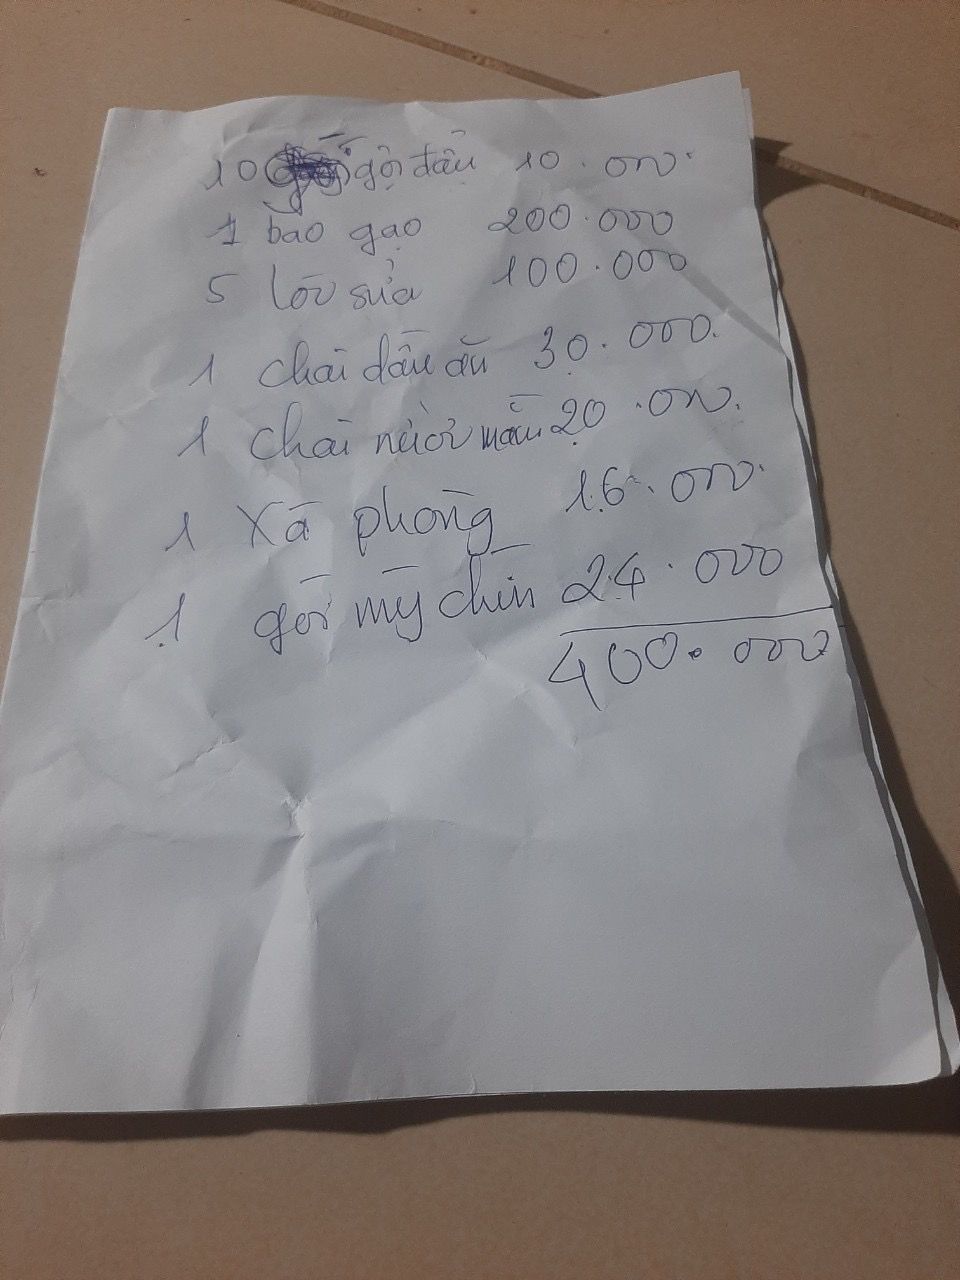 10 gội đầu 10.000
1 bao gạo 200.000
5 lốc sửa 100.000
1 chai dầu ăn 30.000.
1 chai nước mắm 20.000.
1 Xà phòng 16.000.
1 gói mỳ chín 24.000
400.000